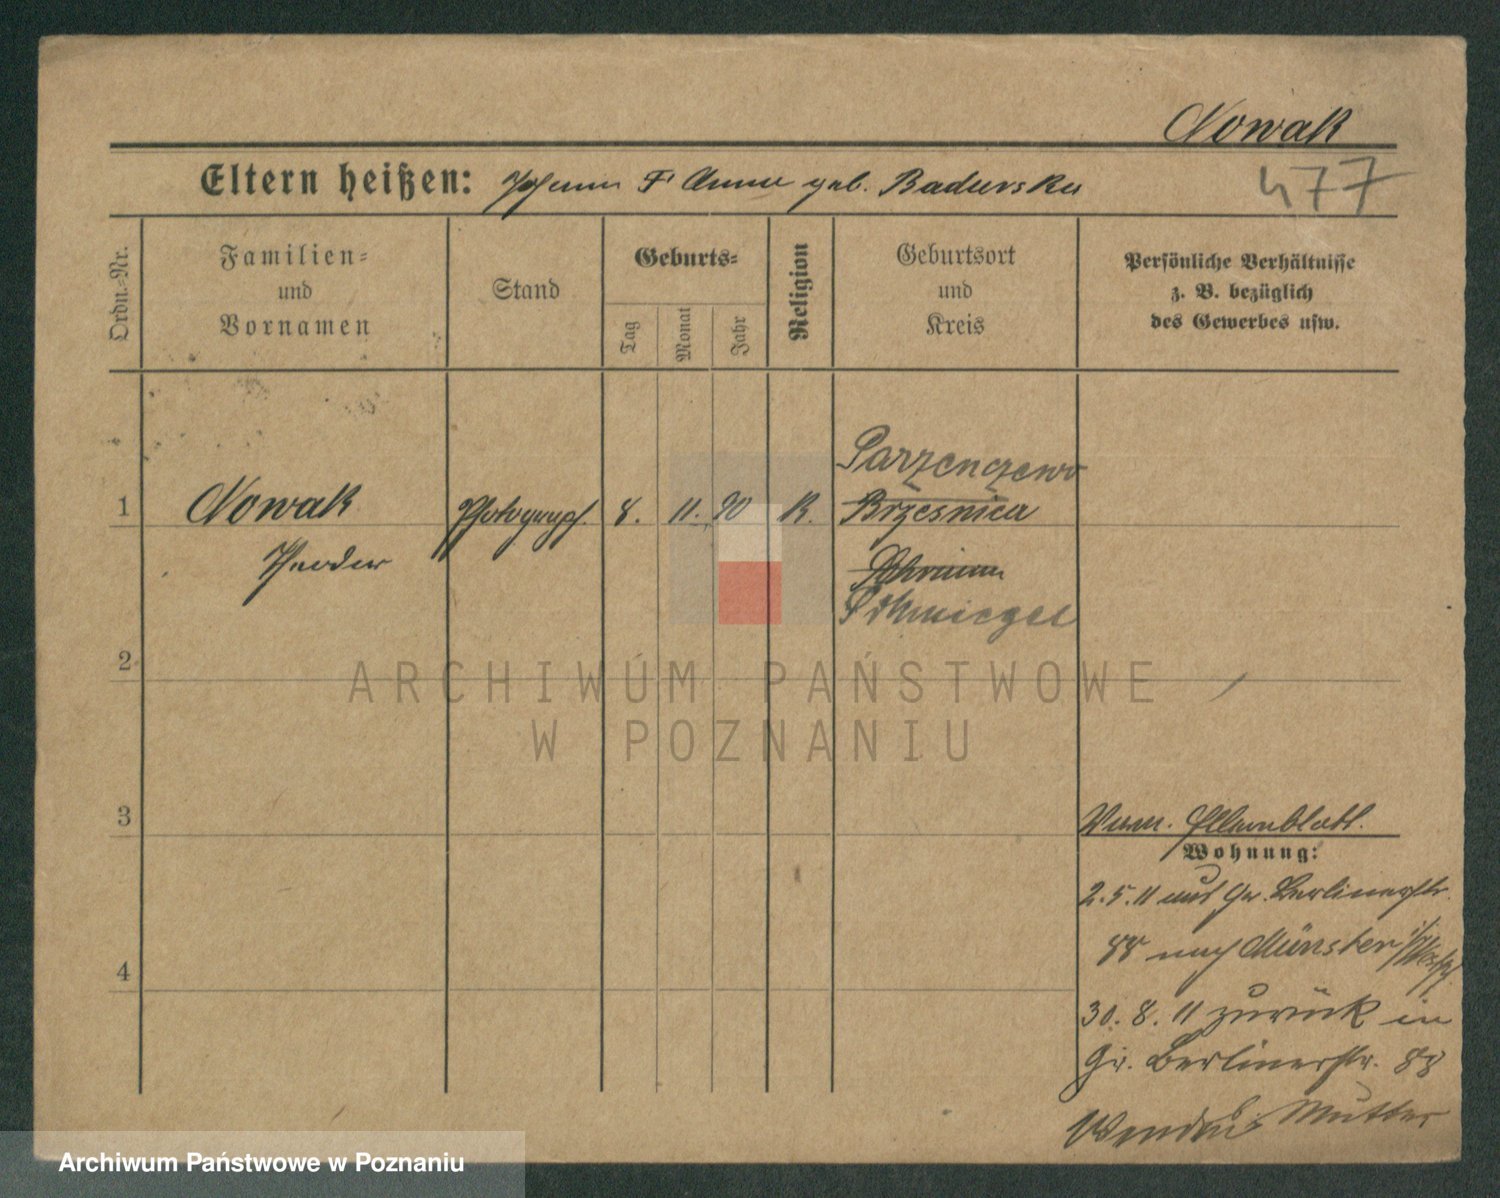 Nowak
477
Eltern heißen: Johann & Anna geb. Badurska
Ordn.-Nr.
Familien=
und
Vornamen
Stand
Geburts=
Tag
Monat
Jahr
Religion
Geburtsort
und
Kreis
Persönliche Verhältnisse
z. B. bezüglich
des Gewerbes usw.
Parzenczewo
1 Nowak Photograph. 8. 11. 90 K. Brzesnica
Theodor Schrimm
Schmiegel
2
ARCHIWUM PAŃSTWOWE
W POZNANIU
3
Elternblatt.
Wohnung:
2.5.11 aus Gr. Berlinerstr.
88 nach Münster i/Westf.
4
30. 8. 11 zurück in
Gr. Berlinerstr. 88
Mutter
Archiwum Państwowe w Poznaniu